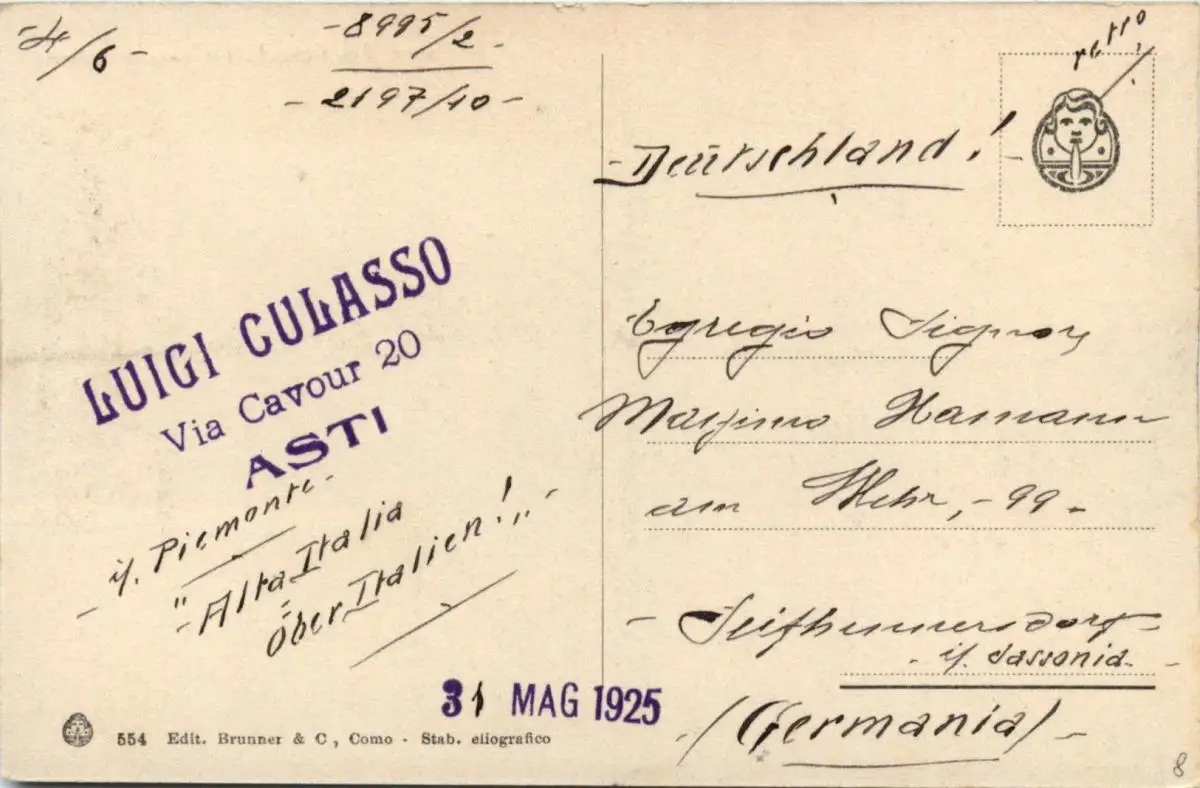 -4/6-
-8995/2-
-2197/10-
retto
-Deutschland!-
LUIGI CULASSO
Via Cavour 20
ASTI
-i/. Piemonte-
"-Alta Italia
=
Ober Italien!"-
31 MAG 1925
554 Edit. Brunner & C, Como - Stab. eliografico
Egregio Signor
Massimo Hamann
am Wehr, -99-
-Seifhennersdorf-
- i/. Sassonia- -
-(Germania)-
8